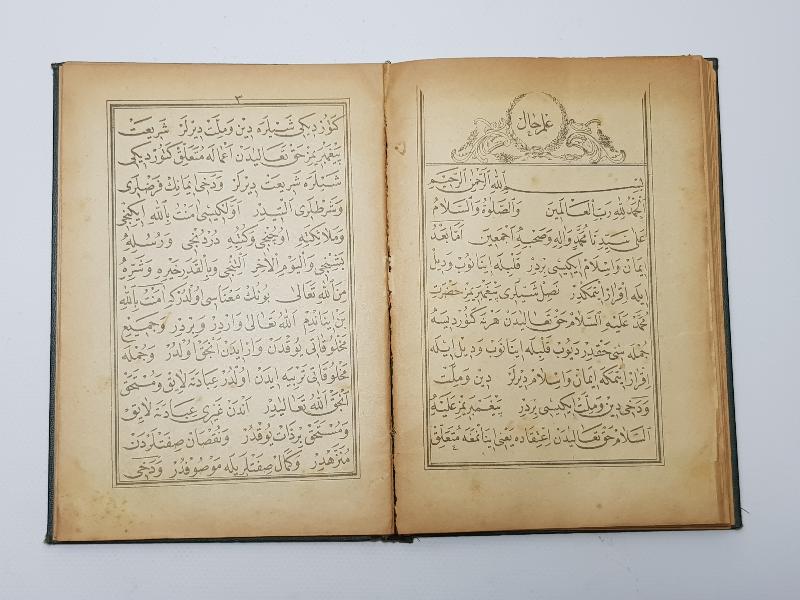 علم حال
بسم الله الرحمن الرحيم
الحمد لله رب العالمين والصلوة والسلام
على سيدنا محمد وآله وصحبه اجمعين اما بعد
ايمان واسلام ايكيسى بردر قلبله اينانوب و ديل
ايله اقرار ايتمكدر نصل شيلرى پيغمبريمز حضرت
محمد عليه السلام حق تعاليدن هر نه كتوردیسه
جمله سى حقدر ديوب قلبله اينانوب و ديل ايله
اقرار ايتمكه ايمان واسلام ديرلر دين وملت
ودخى دين وملت ايكيسى بردر پيغمبريمز عليه
السلام حق تعاليدن اعتقاده يعنى اينانمغه متعلق
٣
كتوردیكى شيلره دين وملت ديرلر شريعت
پيغمبريمز حق تعاليدن اعماله متعلق كتوردیكى
شيلره شريعت ديرلر ودخى ايمانك فرضلرى
وشرطلرى التيدر اولكيسى امنت بالله ايكنجى
وملائكته اوچنجى وكتبه دردنجى ورسله
بشنجى واليوم الاخر التنجى وبالقدر خيره وشره
من الله تعالى بونك معناسى اولدر كه امنت بالله
بن ايناندم الله تعالى واردر وبردر وجميع
مخلوقاتى يوقدن وار ايدن انجق اولدر وجمله
مخلوقاتى تربيه ايدن اولدر عبادته لايق ومستحق
انجق الله تعاليدر اندن غيرى عبادته لايق
ومستحق بر ذات يوقدر ونقصان صفتلردن
منزهدر وكمال صفتلريله موصوفدر ودخى